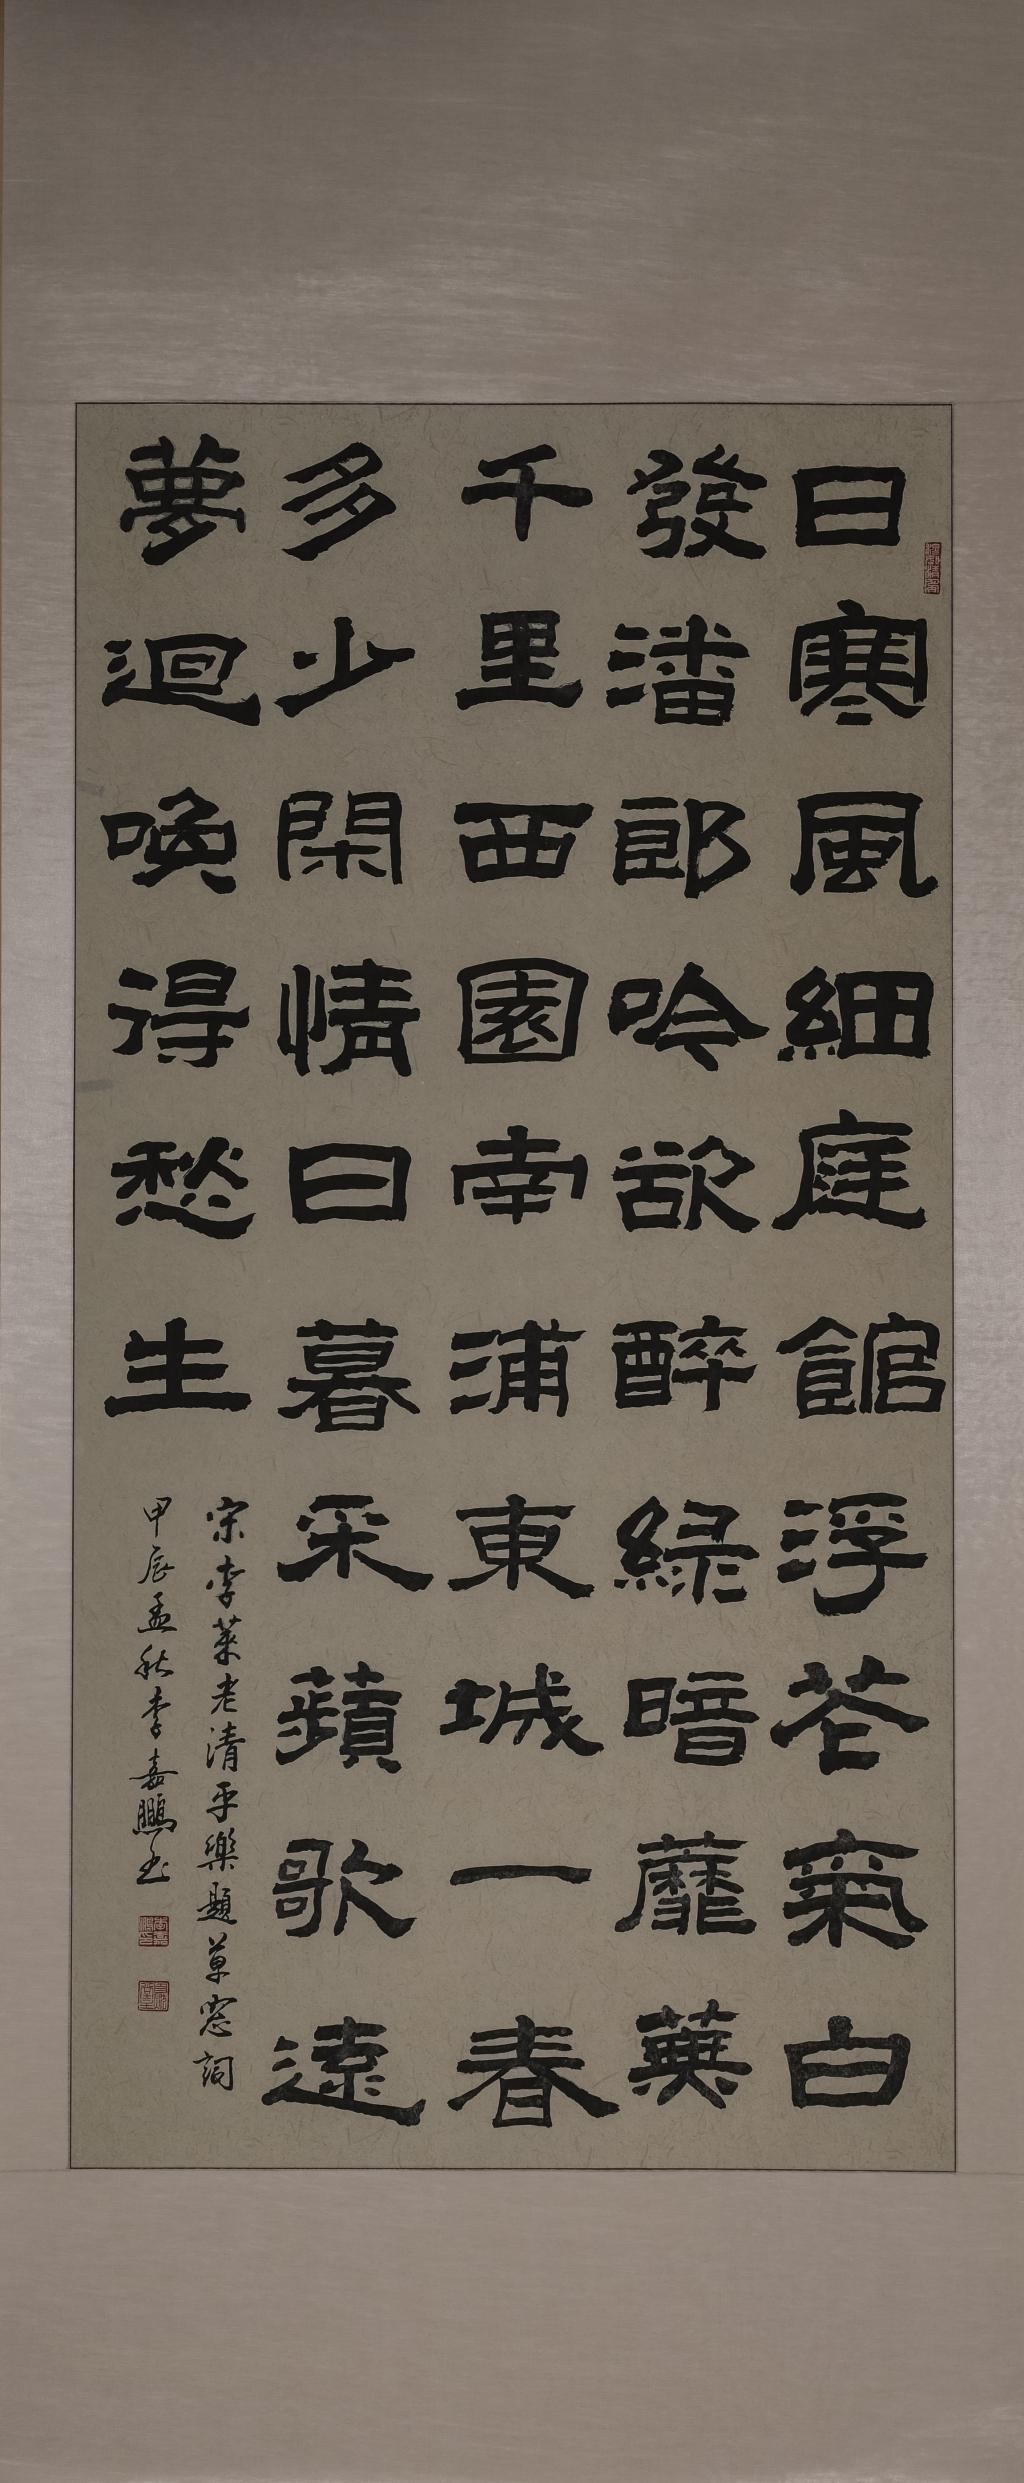 日寒風細庭館浮花氣白
發潘郎吟欲醉綠暗蘼蕪
千里西園南浦東城一春
多少閑情日暮采蘋歌遠
夢迴喚得愁生
宋李萊老清平樂題草窓詞
甲辰孟秋李嘉鵬書